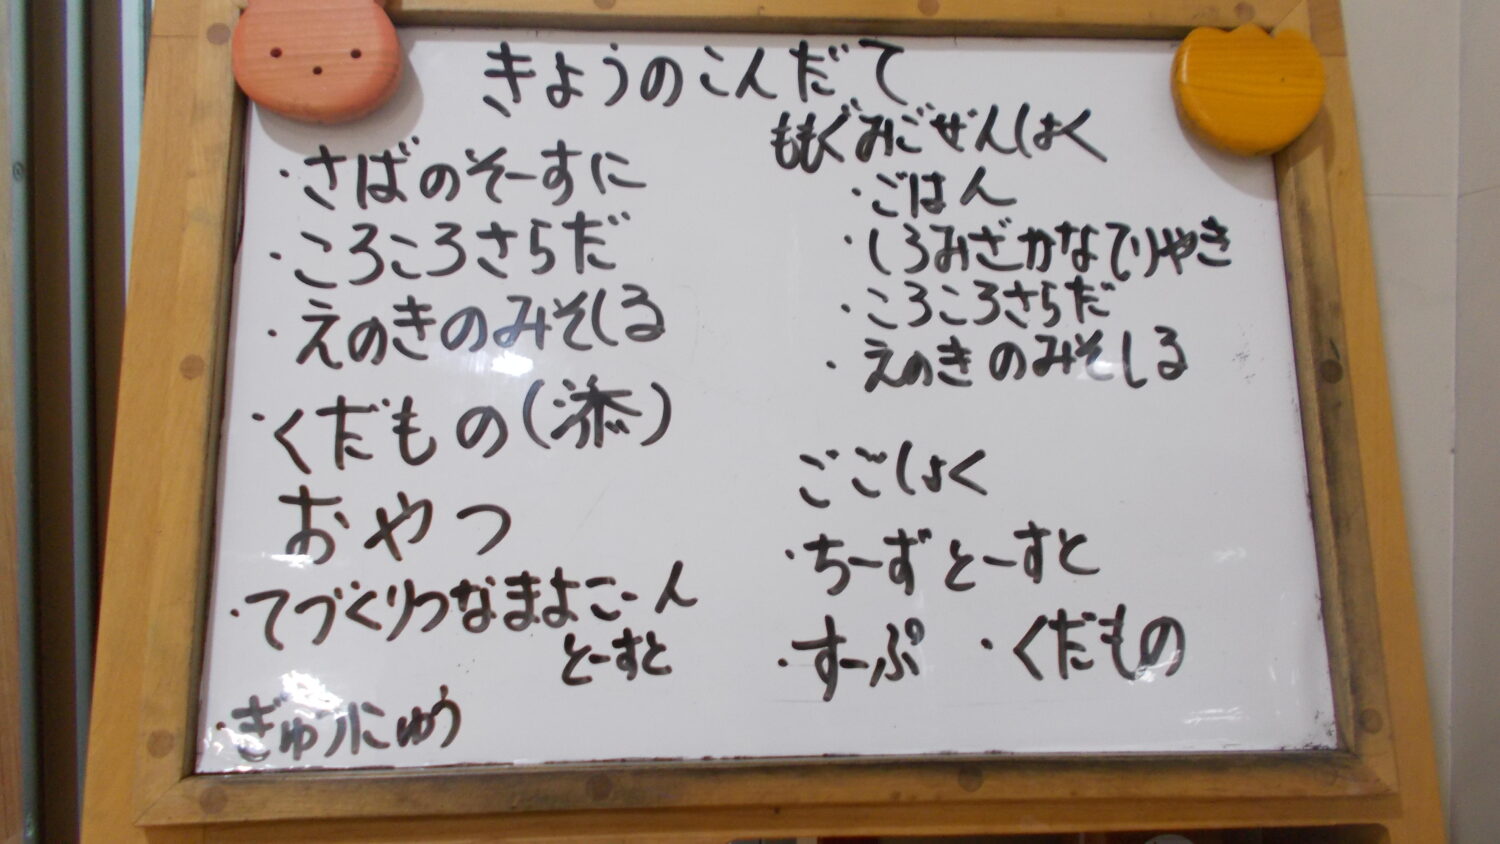 きょうのこんだて
・さばのそーすに
・ころころさらだ
・えのきのみそしる
・くだもの(添)
おやつ
・てづくりつなまよこーん
とーすと
・ぎゅうにゅう
ももぐみごぜんしょく
・ごはん
・しろみざかなてりやき
・ころころさらだ
・えのきのみそしる
ごごしょく
・ちーずとーすと
・すーぷ ・くだもの